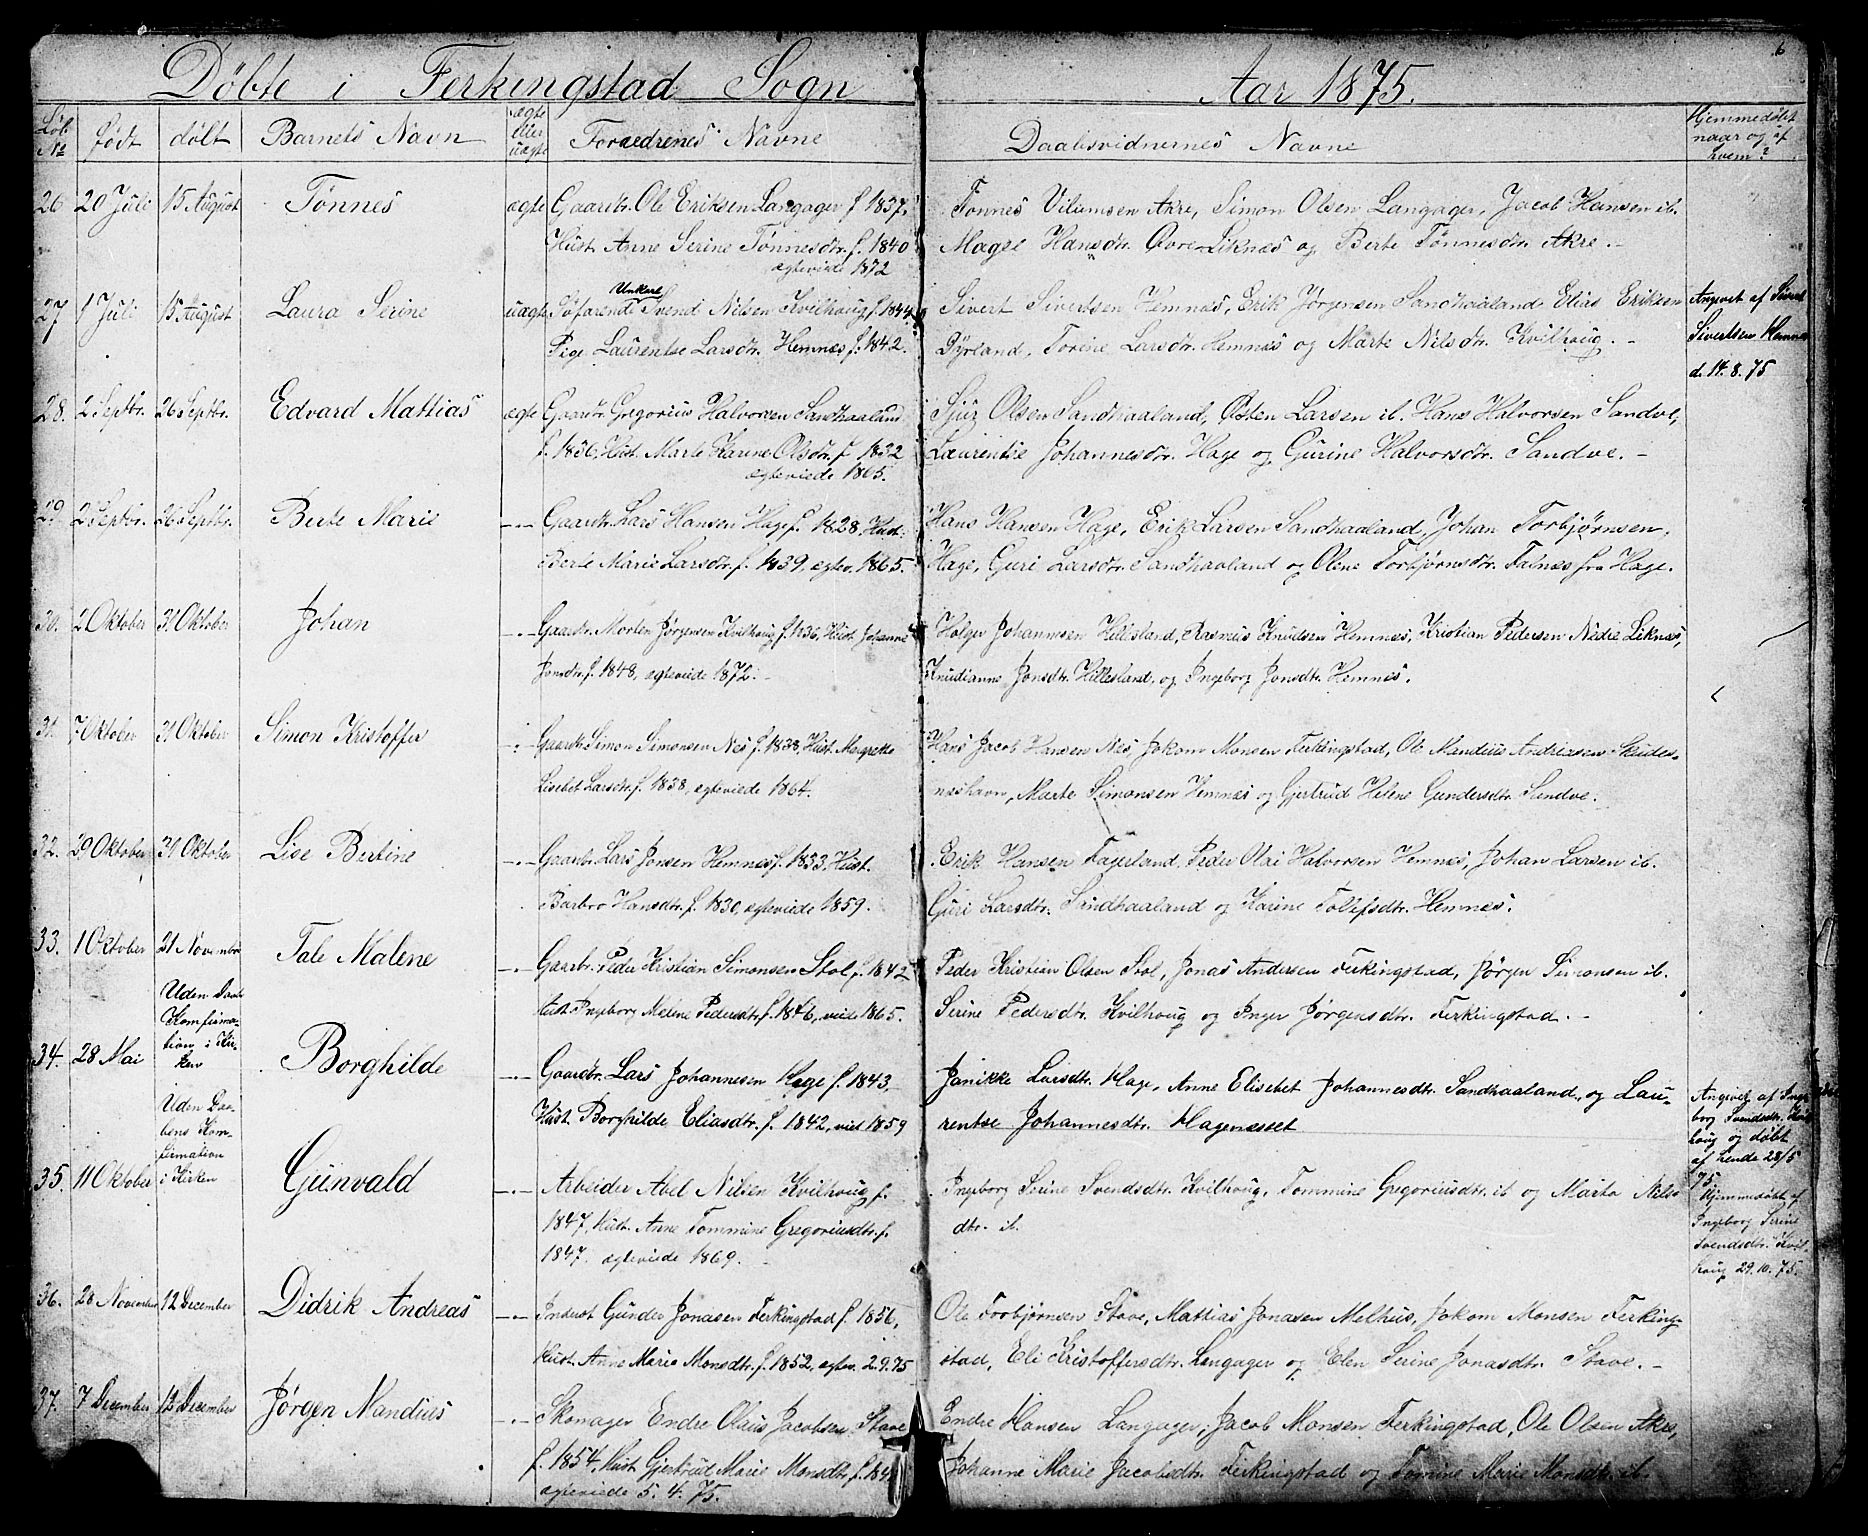 6
Döbte i Ferkingstad Sogn Aar 1875.
Löb. No födt döbt Barnets Navn ægte eller uægte Foraedrenes Navne Daabsvidnernes Navne Hjemmedöbt naar og af hvem?
26 20 Juli 15 August Tønnes ægte Gaardbr. Ole Eriksen Langager f. 1837. Tønnes Vilumsen Akre, Simon Olsen Langager, Jacob Hansen ib.
Hust. Anne Serine Tønnesdtr. f. 1840 Magle Hansdtr. Øvre Liknes og Berte Tønnesdtr. Akre. -
ægteviede 1872
27 1 Juli 15 August Laura Serine uægte Söfarende Unkarl Svend Nilsen Kvilhoug f. 1844. Sivert Sivertsen Hemnes, Erik Jørgensen Sandhaaland Elias Eriksen Angivet af Sivert
Pige Laurentse Larsdtr. Hemnes f. 1842. Dyrland, Torine Larsdtr. Hemnes og Marte Nilsdtr. Kvilhoug. - Sivertsen Hemnes
d. 14. 8. 75
28. 2 Septbr. 26 Septbr. Edvard Mattias ægte Gaardbr. Gregorius Halvorsen Sandhaaland Sjur Olsen Sandhaaland, Østen Larsen ib. Hans Halvorsen Sandve,
f. 1836, Hust. Marte Karine Olsdtr. f. 1832 Laurentse Johannesdtr. Hage og Gurine Halvorsdtr. Sandve. -
ægteviede 1865.
29. 2 Septbr. 26 Septbr. Berte Marie -"- Gaardbr. Lars Hansen Hage f. 1828 Hust. Hans Hansen Hage, Erik Larsen Sandhaaland, Johan Torbjørnsen
Berte Marie Larsdtr. f. 1839, ægtev. 1865. Hage, Guri Larsdtr. Sandhaaland og Olene Torbjørnsdtr. Falnes fra Hage.
30. 2 Oktober 31 Oktober Johan -"- Gaardbr. Morten Jørgensen Kvilhoug f. 1836, Hust. Johanne Holger Johannesen Hillesland, Rasmus Knudsen Hemnes, Kristian Pedersen Nedre Liknes,
Jonsdtr. f. 1848, ægteviede 1872. - Knudianne Jonsdtr. Hillesland, og Ingeborg Jonsdtr. Hemnes.
31. 7 Oktober 31 Oktober Simon Kristoffer -"- Gaardbr. Simon Simonsen Nes f. 1838, Hust. Margrette Hans Jacob Hansen Nes, Jokom Monsen Ferkingstad, Ole Mandius Andreasen Skudes-
Lisebet Larsdtr. f. 1838, ægteviede 1864. neshavn, Marte Simonsen Hemnes og Gjertrud Helene Gundersdtr. Sandve.
32. 29 Oktober 31 Oktober Lise Bertine -"- Gaardbr. Lars Jonsen Hemnes f. 1833, Hust. Erik Hansen Fagerland, Peder Olai Halvorsen Hemnes, Johan Larsen ib.
Barbro Hansdtr. f. 1830, ægteviede 1859. Guri Larsdtr. Sandhaaland og Karine Tollefsdtr. Hemnes.
33. 1 Oktober 21 Novembr Tale Malene -"- Gaardbr. Peder Kristian Simonsen Stol f. 1842 Peder Kristian Olsen Stol, Jonas Andersen Ferkingstad, Jørgen Simonsen ib.
Hust. Ingeborg Meline Pedersdtr. f. 1846, viede 1865. Serine Pedersdtr. Kvilhoug og Inger Jørgensdtr. Ferkingstad. -
34. 28 Mai Uden Daab Komfirma-tion i Kir-ken Borghilde -"- Gaardbr. Lars Johannesen Hage f. 1843. Janikke Larsdtr. Hage, Anne Elisebet Johannesdtr. Sandhaaland, og Lau-
Hust. Borghilde Eliasdtr. f. 1842, vied 1859 rentse Johannesdtr. Hagenesset
Angivet af Inge-
borg Svendsdtr. Kvil
houg og döbt
af hende 28/5
75.
35. 11 Oktober Uden Daa-bens Kom-firmation i Kirken Gunvald -"- Arbeider Abel Nilsen Kvilhoug f. Ingeborg Serine Svendsdtr. Kvilhoug, Tommine Gregoriusdtr. ib og Marta Nils-
1847, Hust. Anne Tommine Gregoriusdtr. f. dtr. ib.
1847. ægteviede 1869.
Hjemmedöbt af
Ingeborg Serine
Svendsdtr. Kvil-
houg 29. 10. 75.
36. 28 November 12 December Didrik Andreas -"- Inderst Gunder Jonasen Ferkingstad f. 1856, Ole Torbjørnsen Stave, Mattias Jonasen Melhus, Jokom Monsen Ferking-
Hust. Anne Marie Monsdtr. f. 1852, ægtev. 2.9.75 stad, Eli Kristoffersdtr. Langager og Elen Serine Jonasdtr. Stave. -
37. 7 December 12 December Jørgen Mandius -"- Skomager Endre Olaus Jacobsen Stave Endre Hansen Langager, Jacob Monsen Ferkingstad, Ole Olsen Akre,
f. 1854, Hust. Gjertrud Marie Monsdtr. f. Johanne Marie Jacobsdtr. Ferkingstad og Tomine Marie Monsdtr. ib.
ægteviede 5. 4. 75.